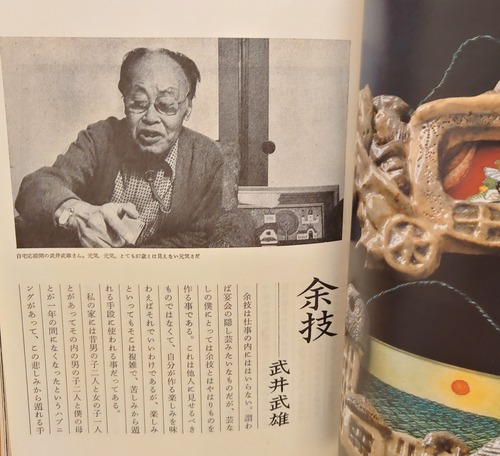 自宅応接間の武井武雄さん。元気、元気、とても87歳とは見えない元気さだ
余技
武井武雄
余技は仕事の内にははいらない、謂わ
ば宴会の隠し芸みたいなものだが、芸な
しの僕にとっては余技とはやはりものを
作る事である。これは他人に見せるべき
ものではなくて、自分が作る楽しみを味
わえばそれでいいわけであるが、楽しみ
といってもそこは複雑で、苦しみから遁
れる手段に使われる事だってある。
私の家には昔男の子二人と女の子一人
とがあってその内の男の子二人と僕の母
とが一年の間になくなったというハプニ
ングがあって、この悲しみから遁れる手